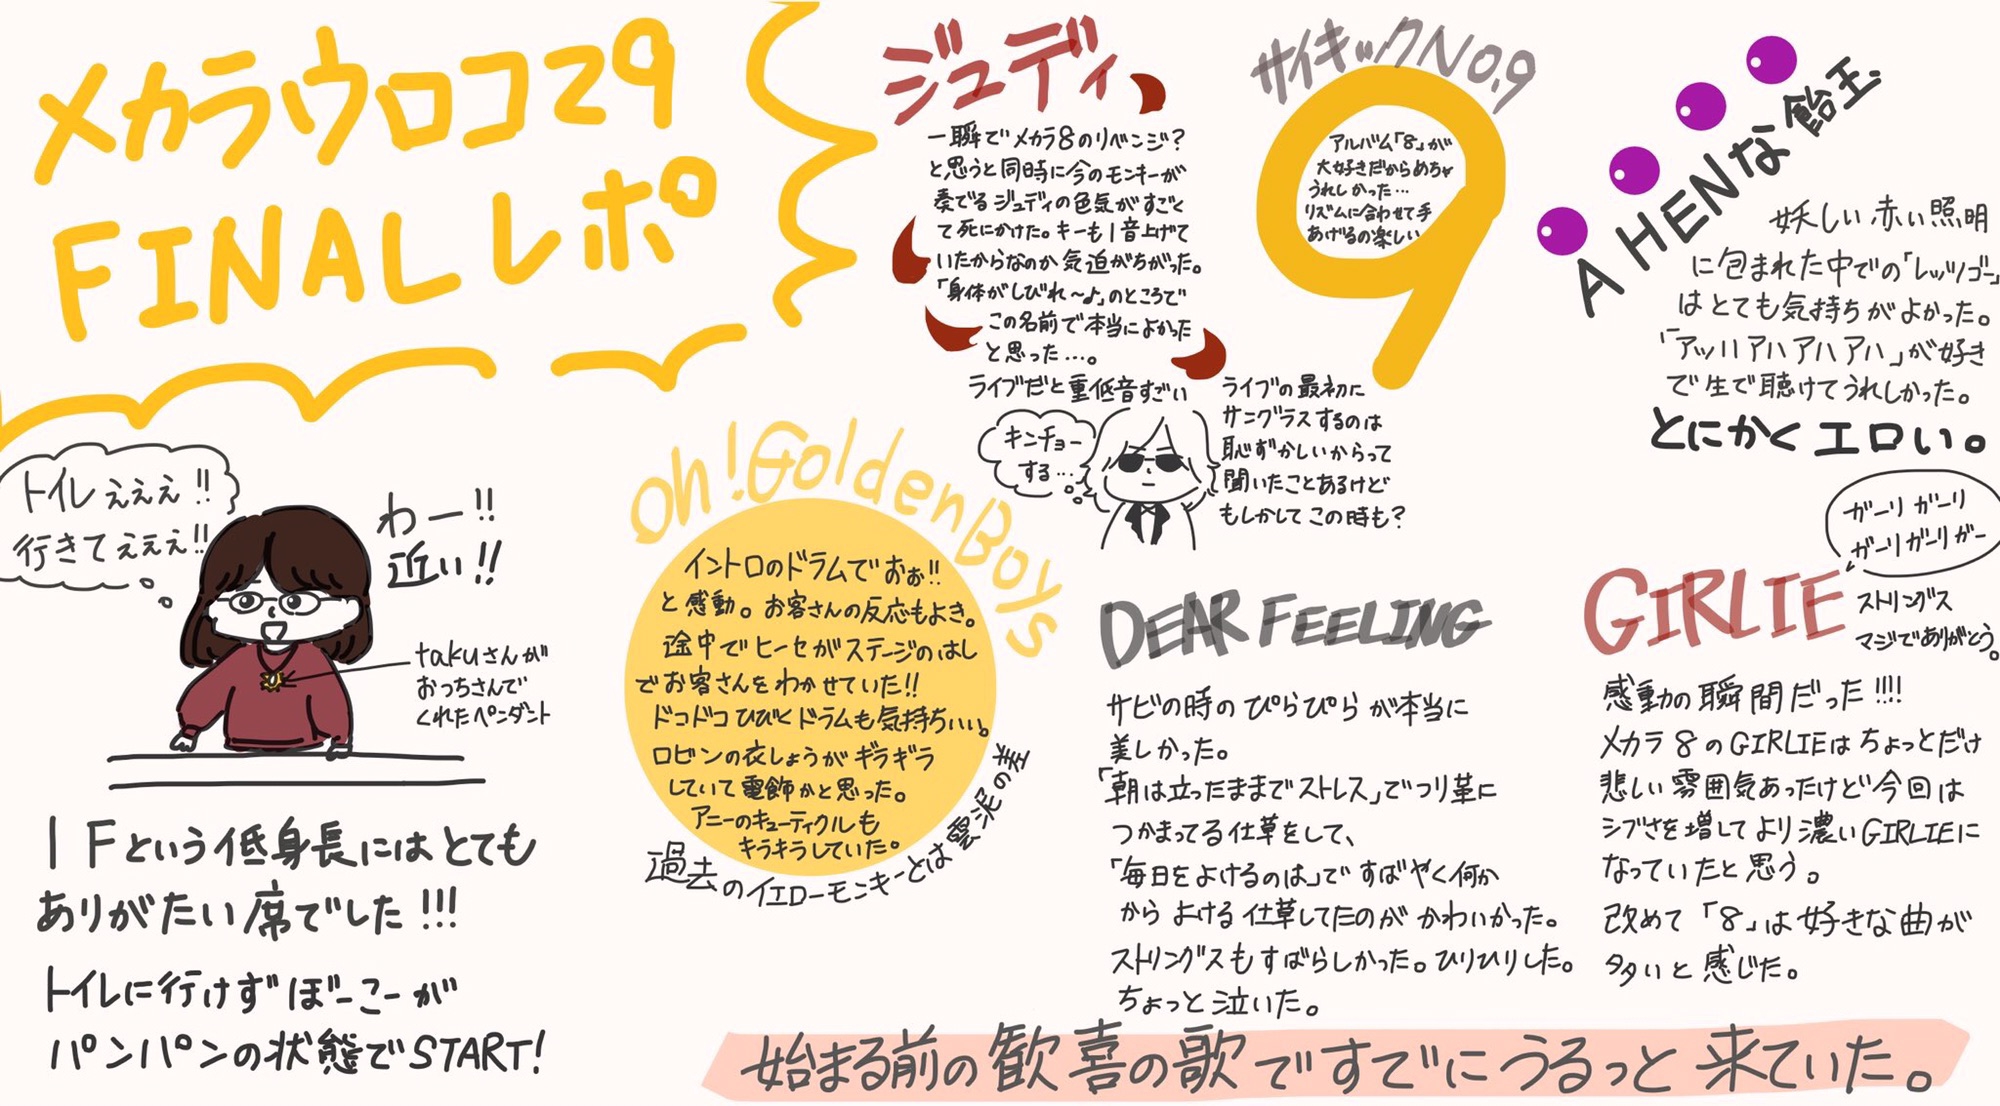 メカラウロコ29
FINALレポ
トイレぇぇぇ!!
行きてぇぇぇ!!
わー!!
近い!!
takuさんが
おっちさんで
くれたペンダント
1Fという低身長にはとても
ありがたい席でした!!!
トイレに行けずぼーこーが
パンパンの状態でSTART!
ジュディ
一瞬でメカラ8のリベンジ?
と思うと同時に今のモンキーが
奏でるジュディの色気がすごく
て死にかけた。キーも1音上げて
いたからなのか気迫がちがった。
「身体がしびれ〜♪」のところで
この名前で本当によかった
と思った…。
ライブだと重低音すごい
サイキックNO.9
9
アルバム「8」が
大好きだからめちゃ
うれしかった…
リズムに合わせて手
あげるの楽しい
キンチョー
する…
ライブの最初に
サングラスするのは
恥ずかしいからって
聞いたことあるけど
もしかしてこの時も?
A HENな飴玉
妖しい赤い照明
に包まれた中での「レッツゴー」
はとても気持ちがよかった。
「アッハアハアハアハ」が好き
で生で聴けてうれしかった。
とにかくエロい。
Oh!Golden Boys
イントロのドラムでおぉ!!
と感動。お客さんの反応もよき。
途中でヒーセがステージのはし
でお客さんをわかせていた!!
ドコドコひびくドラムも気持ちいい。
ロビンの衣しょうがギラギラ
していて電飾かと思った。
アニーのキューティクルも
キラキラしていた。
過去のイエローモンキーとは雲泥の差
DEAR FEELING
サビの時のぴらぴらが本当に
美しかった。
「朝は立ったままでストレス」でつり革に
つかまってる仕草をして、
「毎日をよけるのは」ですばやく何か
からよける仕草してたのがかわいかった。
ストリングスもすばらしかった。ひりひりした。
ちょっと泣いた。
GIRLIE
ガーリガーリ
ガーリガーリガー
ストリングス
マジでありがとう。
感動の瞬間だった!!!!
メカラ8のGIRLIEはちょっとだけ
悲しい雰囲気あったけど今回は
シブさを増してより濃いGIRLIEに
なっていたと思う。
改めて「8」は好きな曲が
多いと感じた。
始まる前の歓喜の歌ですでにうるっと来ていた。